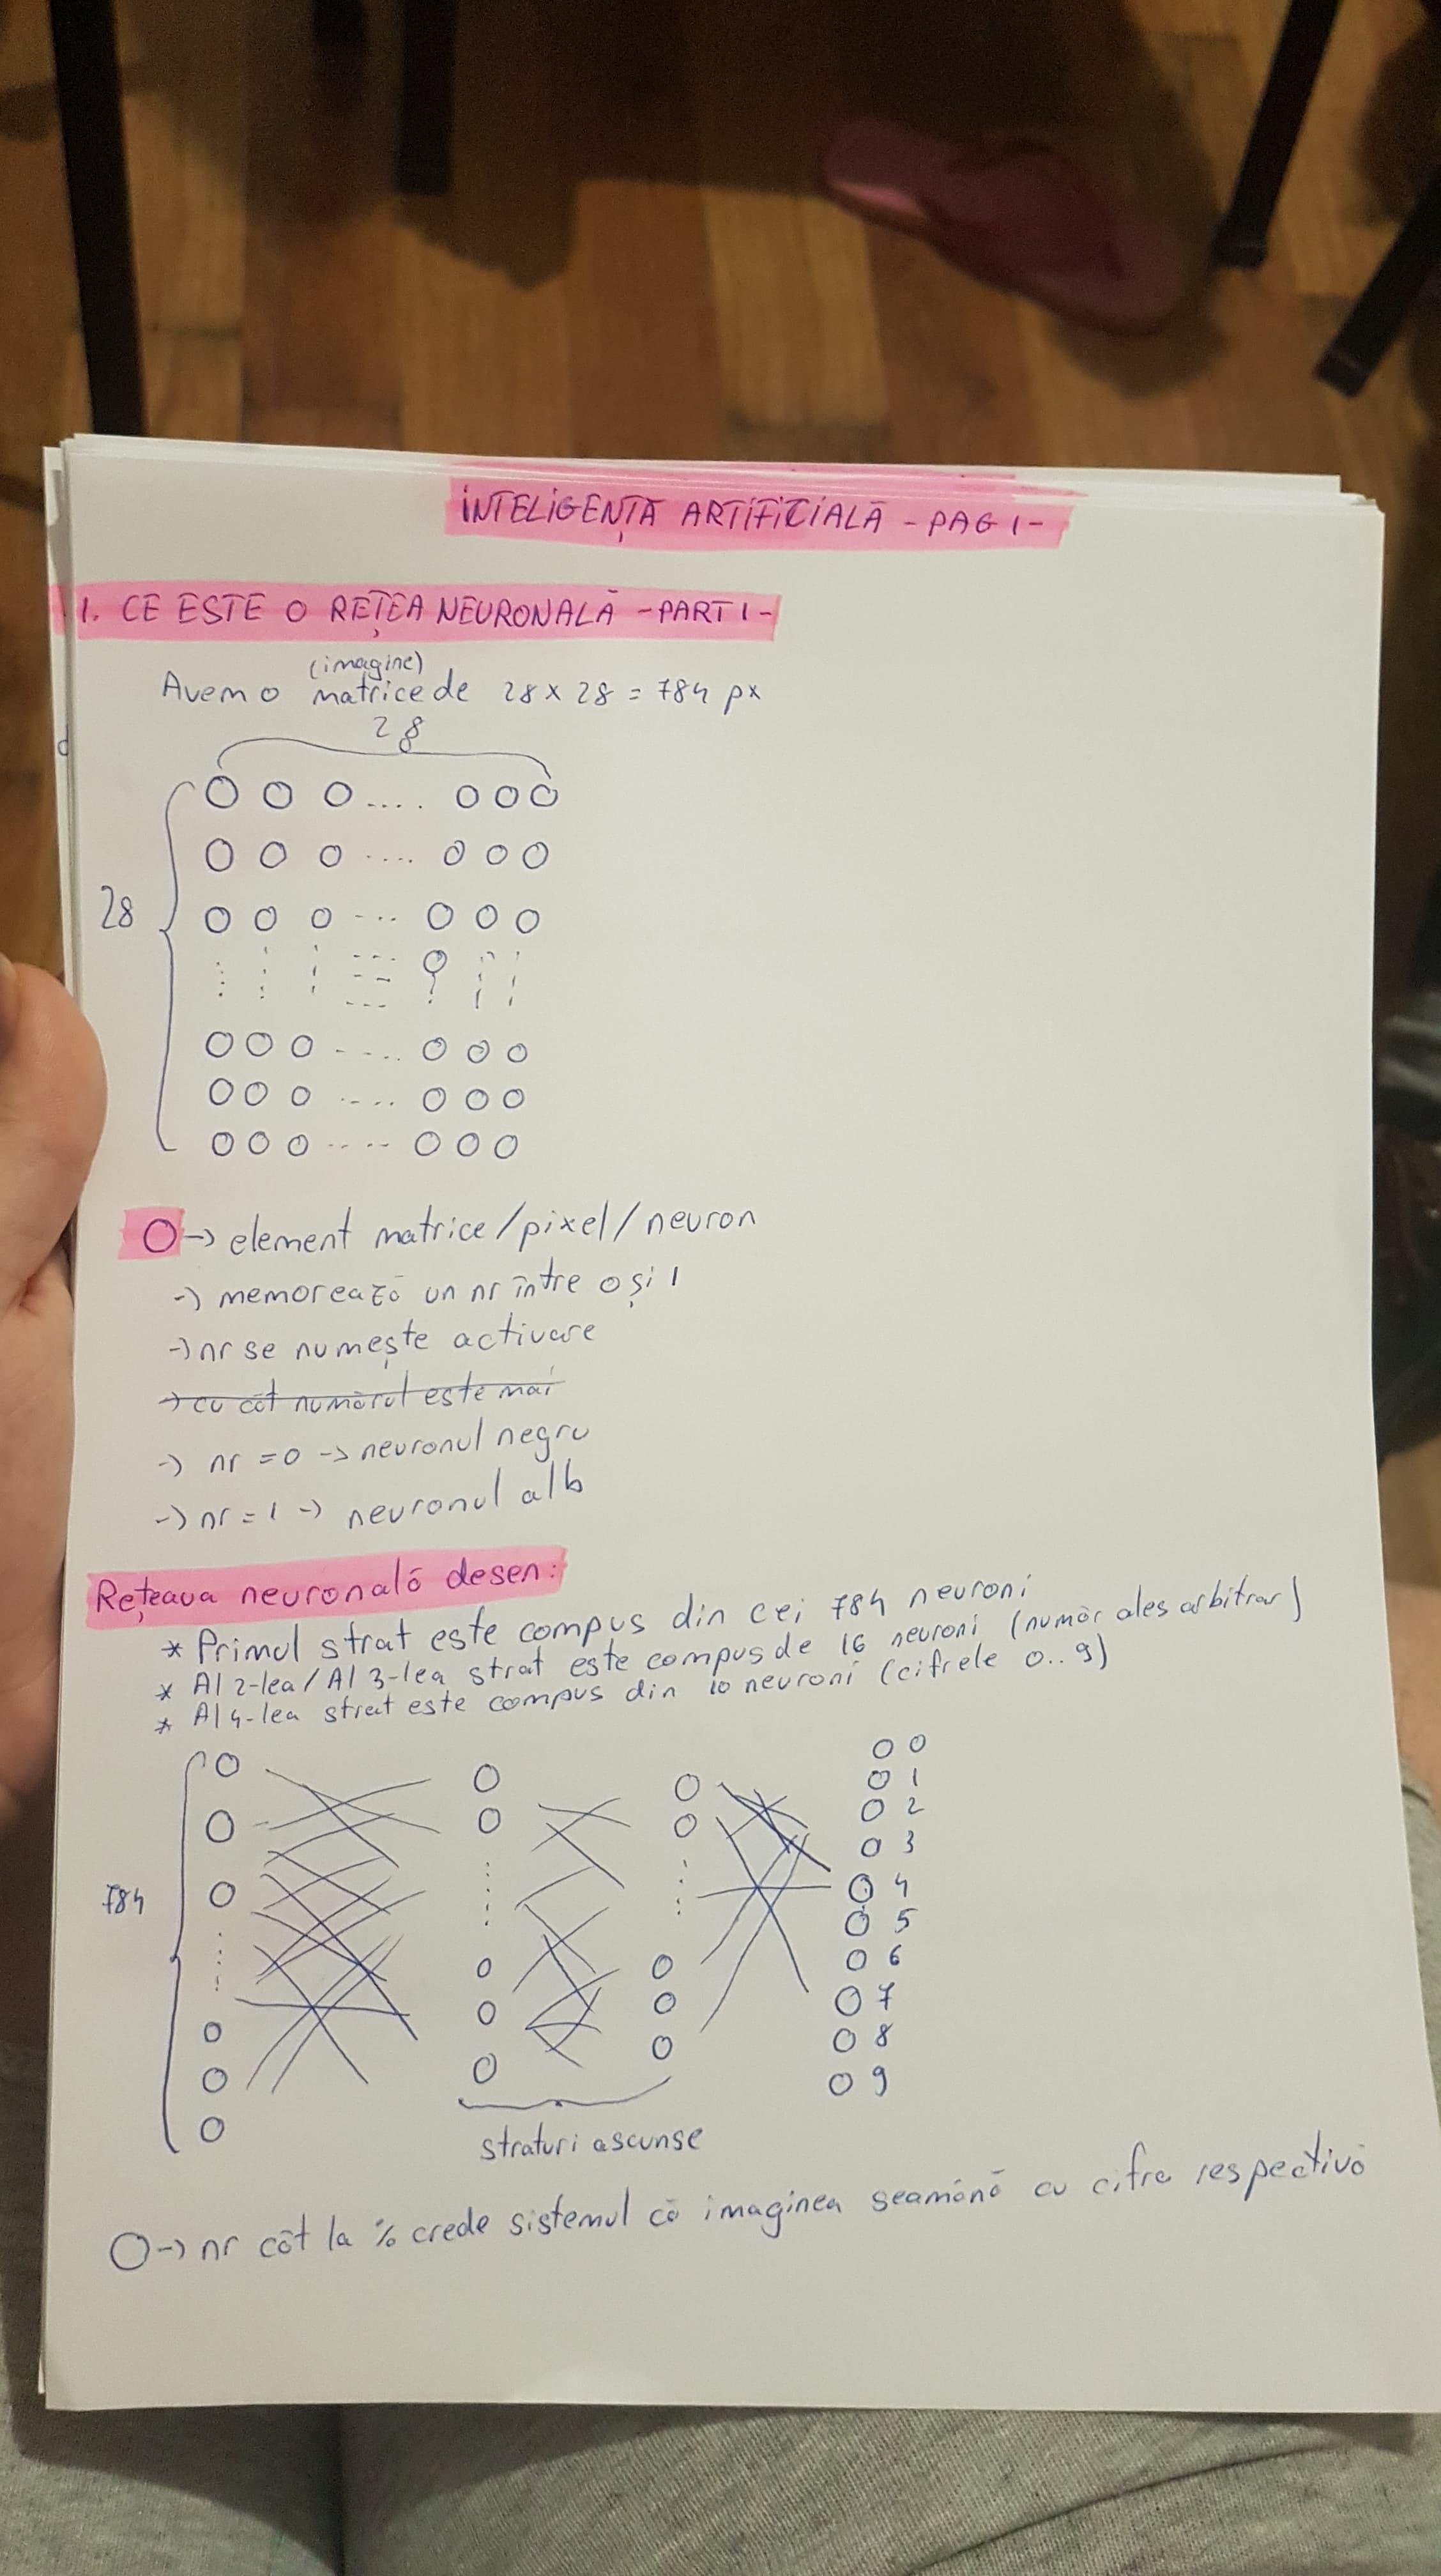 INTELIGENȚĂ ARTIFICIALĂ - PAG 1 -
1. CE ESTE O REȚEA NEURONALĂ - PART 1 -
(imagine)
Avem o matrice de 28 x 28 = 784 px
28
28
O -> element matrice/pixel/neuron
-> memorează un nr între 0 și 1
-> nr se numește activare
-> cu cât numărul este mai
-> nr = 0 -> neuronul negru
-> nr = 1 -> neuronul alb
Rețeaua neuronală desen:
* Primul strat este compus din cei 784 neuroni
* Al 2-lea / Al 3-lea strat este compus de 16 neuroni (număr ales arbitrar)
* Al 4-lea strat este compus din 10 neuroni (cifrele 0..9)
784
0
1
2
3
4
5
6
7
8
9
straturi ascunse
O -> nr cât la % crede sistemul că imaginea seamănă cu cifra respectivă